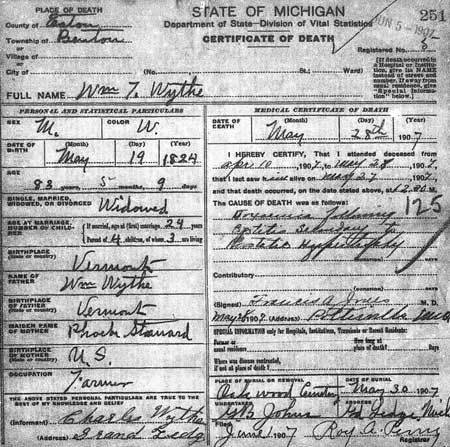 PLACE OF DEATH
STATE OF MICHIGAN
JUN 5 - 1907
251
County of Eaton
Department of State—Division of Vital Statistics
Township of Benton
CERTIFICATE OF DEATH
Village of
Registered No. 8
City of (No. St.; Ward)
(If death occurred in a Hospital or Institution, give its NAME instead of street and number. If away from usual residence, give "Special Information" below.)
FULL NAME Wm T. Wythe
PERSONAL AND STATISTICAL PARTICULARS
SEX M.
COLOR W.
DATE OF BIRTH
(Month) (Day) (Year)
May 19 1824
AGE
83 years, 5 months, 9 days
SINGLE, MARRIED, WIDOWED, OR DIVORCED
Widowed
AGE AT MARRIAGE, NUMBER OF CHILDREN
If married, age at (first) marriage 24 years
Parent of 4 children, of whom 3 are living
BIRTHPLACE
Vermont
NAME OF FATHER
Wm Wythe
BIRTHPLACE OF FATHER
Vermont
MAIDEN NAME OF MOTHER
BIRTHPLACE OF MOTHER
U.S.
OCCUPATION
Farmer
THE ABOVE STATED PERSONAL PARTICULARS ARE TRUE TO THE BEST OF MY KNOWLEDGE AND BELIEF
(Informant) Charles Wythe
(Address) Grand Ledge
MEDICAL CERTIFICATE OF DEATH
DATE OF DEATH
(Month) (Day) (Year)
May 28th 1907
I HEREBY CERTIFY, That I attended deceased
from Apr 10 1907, to May 28 1907,
that I last saw him alive on May 27 1907,
and that death occurred, on the date stated above, at M.
The CAUSE OF DEATH was as follows:
125
following
Cystitis Secondary to
Prostatic Hypertrophy
Contributory
(Signed) Francis A. Jones M. D.
May 28 1907 (Address) Potterville Mich
SPECIAL INFORMATION only for Hospitals, Institutions, Transients or Recent Residents:
Former or usual residence
How long at place of death? Days
Where was disease contracted, if not at place of death?
PLACE OF BURIAL OR REMOVAL
DATE OF BURIAL
Oakwood Cemetery
May 30 1907
UNDERTAKER
ADDRESS
Johns
Gd Ledge Mich
Filed June 1 1907
Roy A. Perry